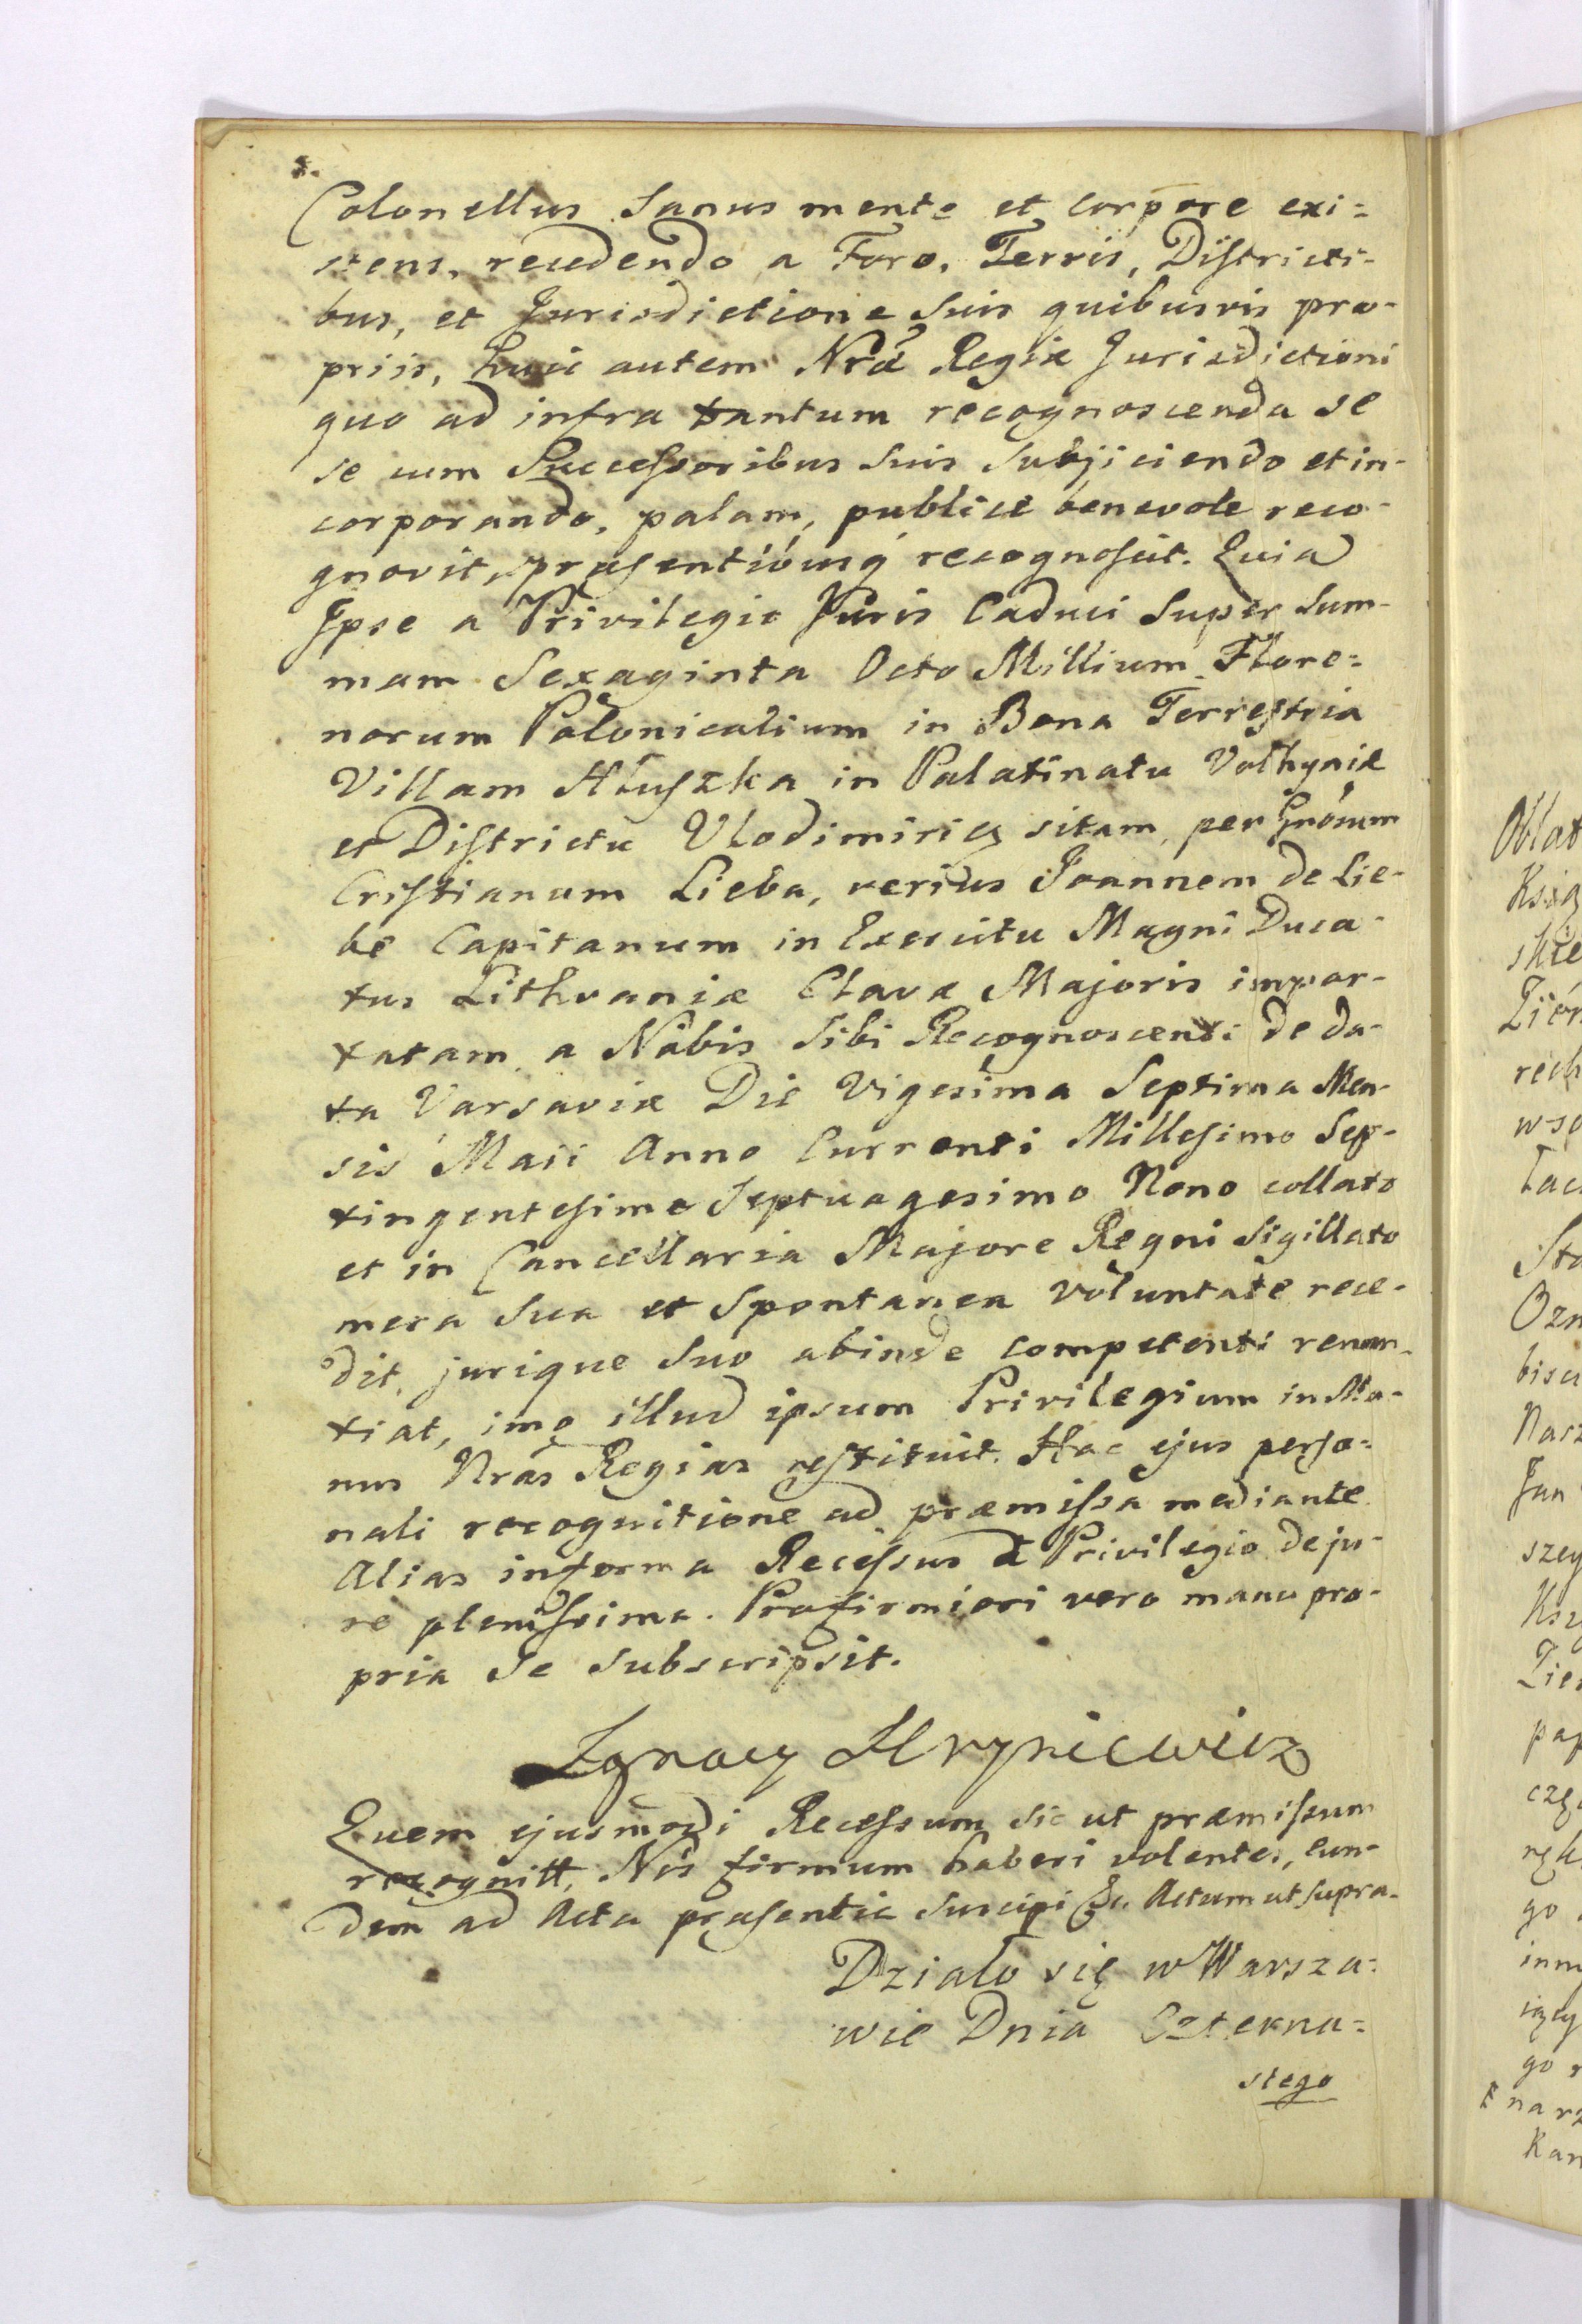 Colonellus Sanus mente et corpore exi=
stens, recedendo a Foro, Terris, Districti-
bus, et Jurisdictione Suis quibusvis pro-
priis, huic autem Nrae Regiae Jurisdictioni
quo ad infra tantum recognoscenda se
se cum Successoribus Suis Subjiciendo et in-
corporando, palam, publice benevole reco-
gnovit, praesentibusq recognoscit. Quia
Ipse a Privilegio Juris Caduci Super Sum-
mam Sexaginta Octo Millium Flore=
norum Polonicalium in Bona Terrestria
Villam Hłuszka in Palatinatu Volhyniae
et Districtu Vlodimirien sitam, per Gnosum
Cristianum Lieba, verius Joannem de Lie-
be Capitanum in Exercitu Magni Duca-
tus Lithvaniae Clavae Majoris impor-
tatam, a Nobis Sibi Recognoscenti de da-
ta Varsaviae Die Vigesima Septima Men-
sis Maii Anno Currenti Millesimo Sep-
tingentesimo Septuagesimo Nono collato
et in Cancellaria Majore Regni Sigillato
mera Sua et Spontanea voluntate rece-
dit, jurique Suo abinde competenti renun-
tiat, imo illud ipsum Privilegium in Ma-
nus Nras Regias restituit. Hac ejus perso=
nali recognitione ad praemissa mediante
Alias in forma Recessus a Privilegio de ju-
re plenissima. Pro firmiori vero manu pro-
pria Se Subscripsit.
Ignacy Hryniewicz
Quem ejusmodi Recessum sic ut praemissum
recognitt, Nos firmum haberi volentes, eun-
dem ad Acta praesentia Suscipi &c. Actum ut supra.
Działo się w Warsza=
wie Dnia Czterna=
stego
Oblat
Ksią
skie
rech
wsp
Sta
Ozn
bisu
Nasz
Jan
szey
Ksi
pap
czę
ręk
go
inn
go
narz
Kan